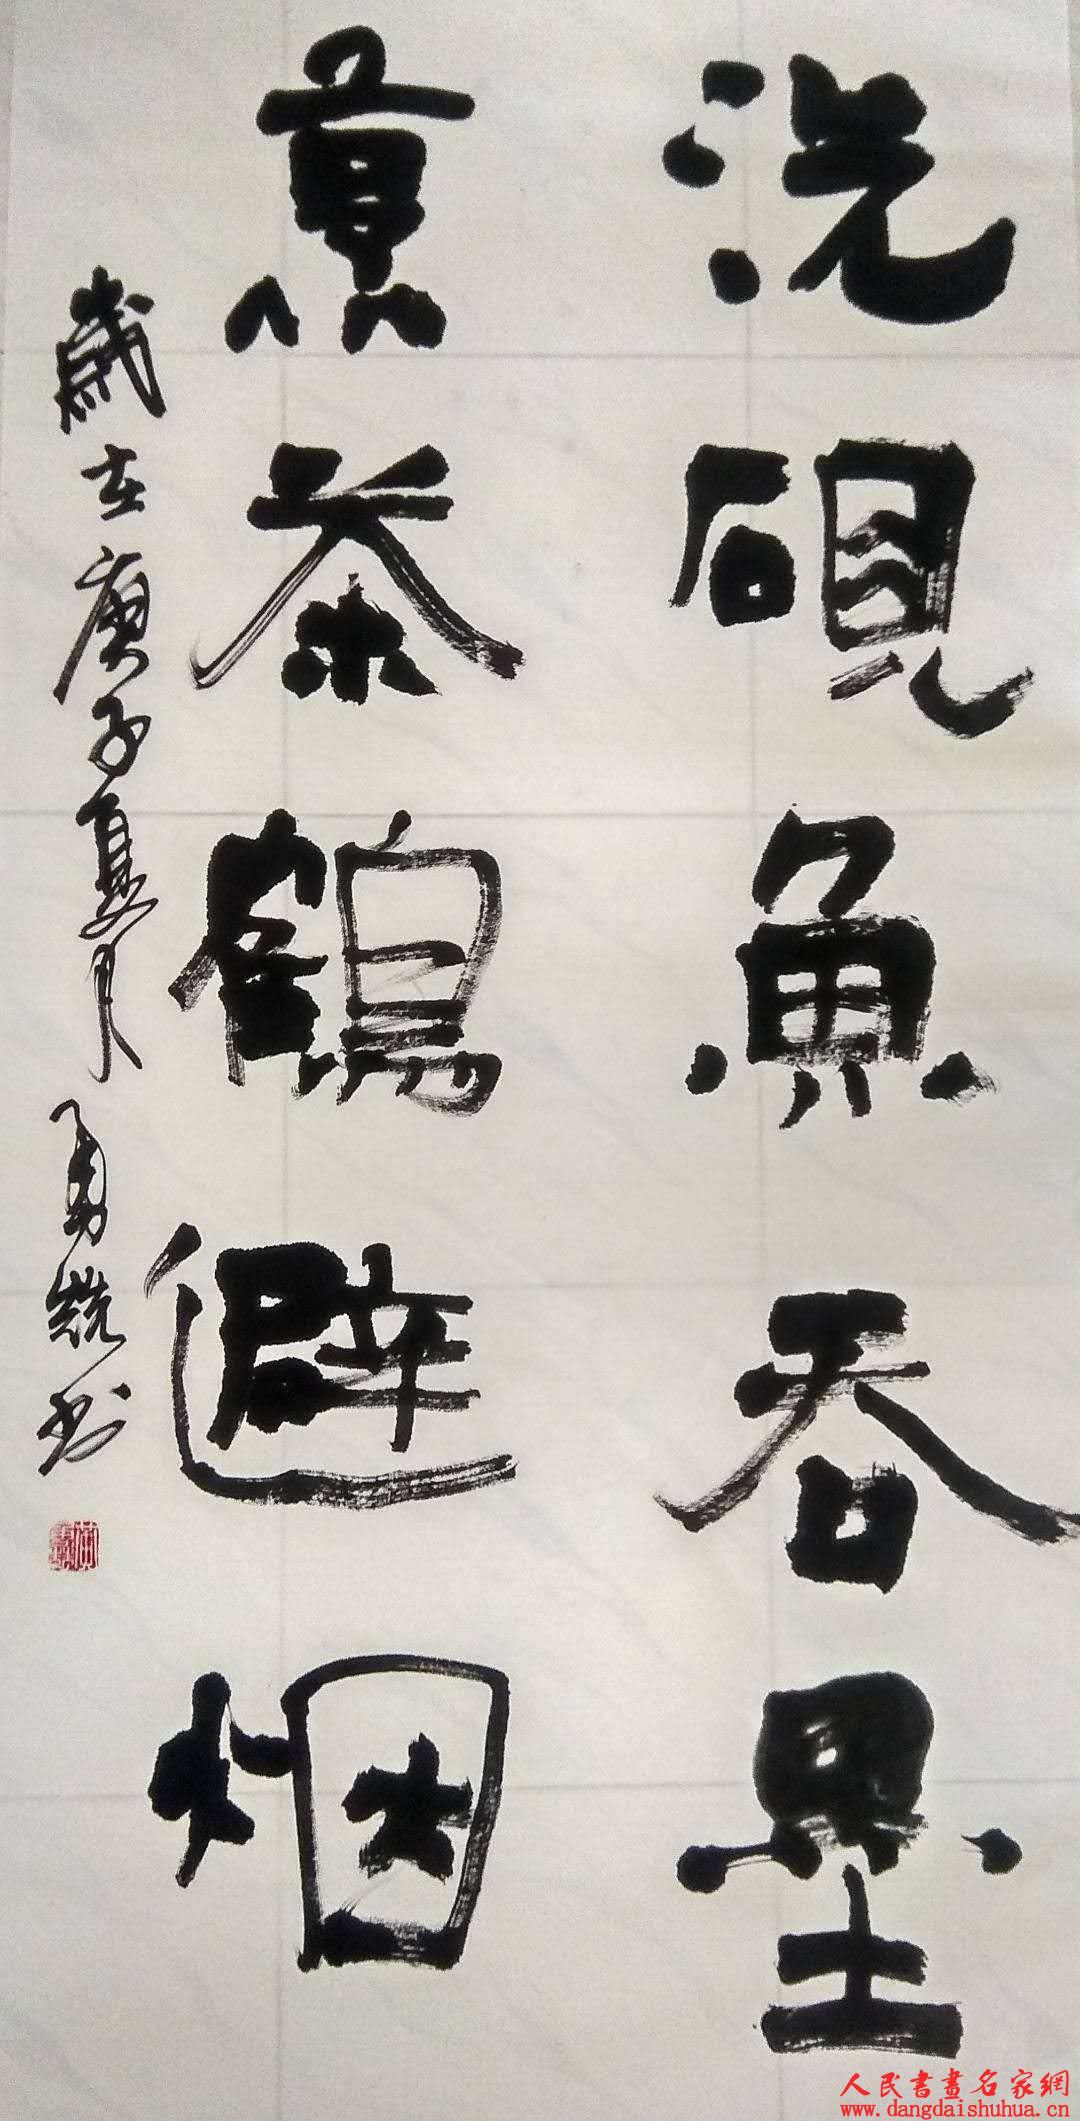 洗砚鱼吞墨
烹茶鹤避烟
岁在庚子夏月
书
人民書畫名家網
www.dangdaishuhua.cn